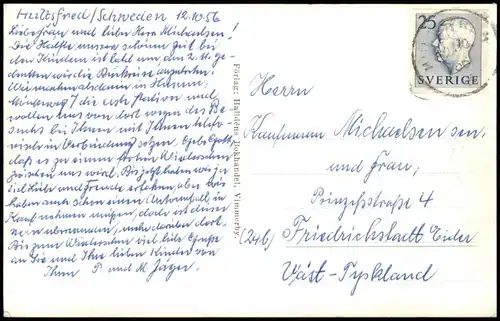 Hultsfred/Schweden 12.10.56
Liebe Frau und lieber Herr Michaelsen!
Die Hälfte unserer schönen Zeit bei
den Kindern ist bald um, am 2.11. ge-
denken wir die Rückreise anzutreten.
Wir machen alsdann in Husum,
7 die erste Station und
wollen uns von dort wegen des Be-
suchs bei Ihnen mit Ihnen telefo-
nisch in Verbindung setzen,
daß es zu einem frohen Wiedersehen
zwischen uns wird. Bis jetzt haben wir ja
viel Liebe und Freude erfahren, aber wir
haben auch schon einen Autounfall in
Kauf nehmen müssen, doch ist dieser
mehr darüber dort.
Bis zum Wiedersehen viel liebe Grüße
an Sie und Ihre lieben Kinder von
Ihren P. und M. Jäger.
Förlag: Hallgrens Bokhandel, Vimmerby.
25
SVERIGE
Herrn
Kaufmann Michaelsen sen.
und Frau,
Prinzeßstraße 4
(24b) Friedrichstadt Eider
Väst-Tyskland